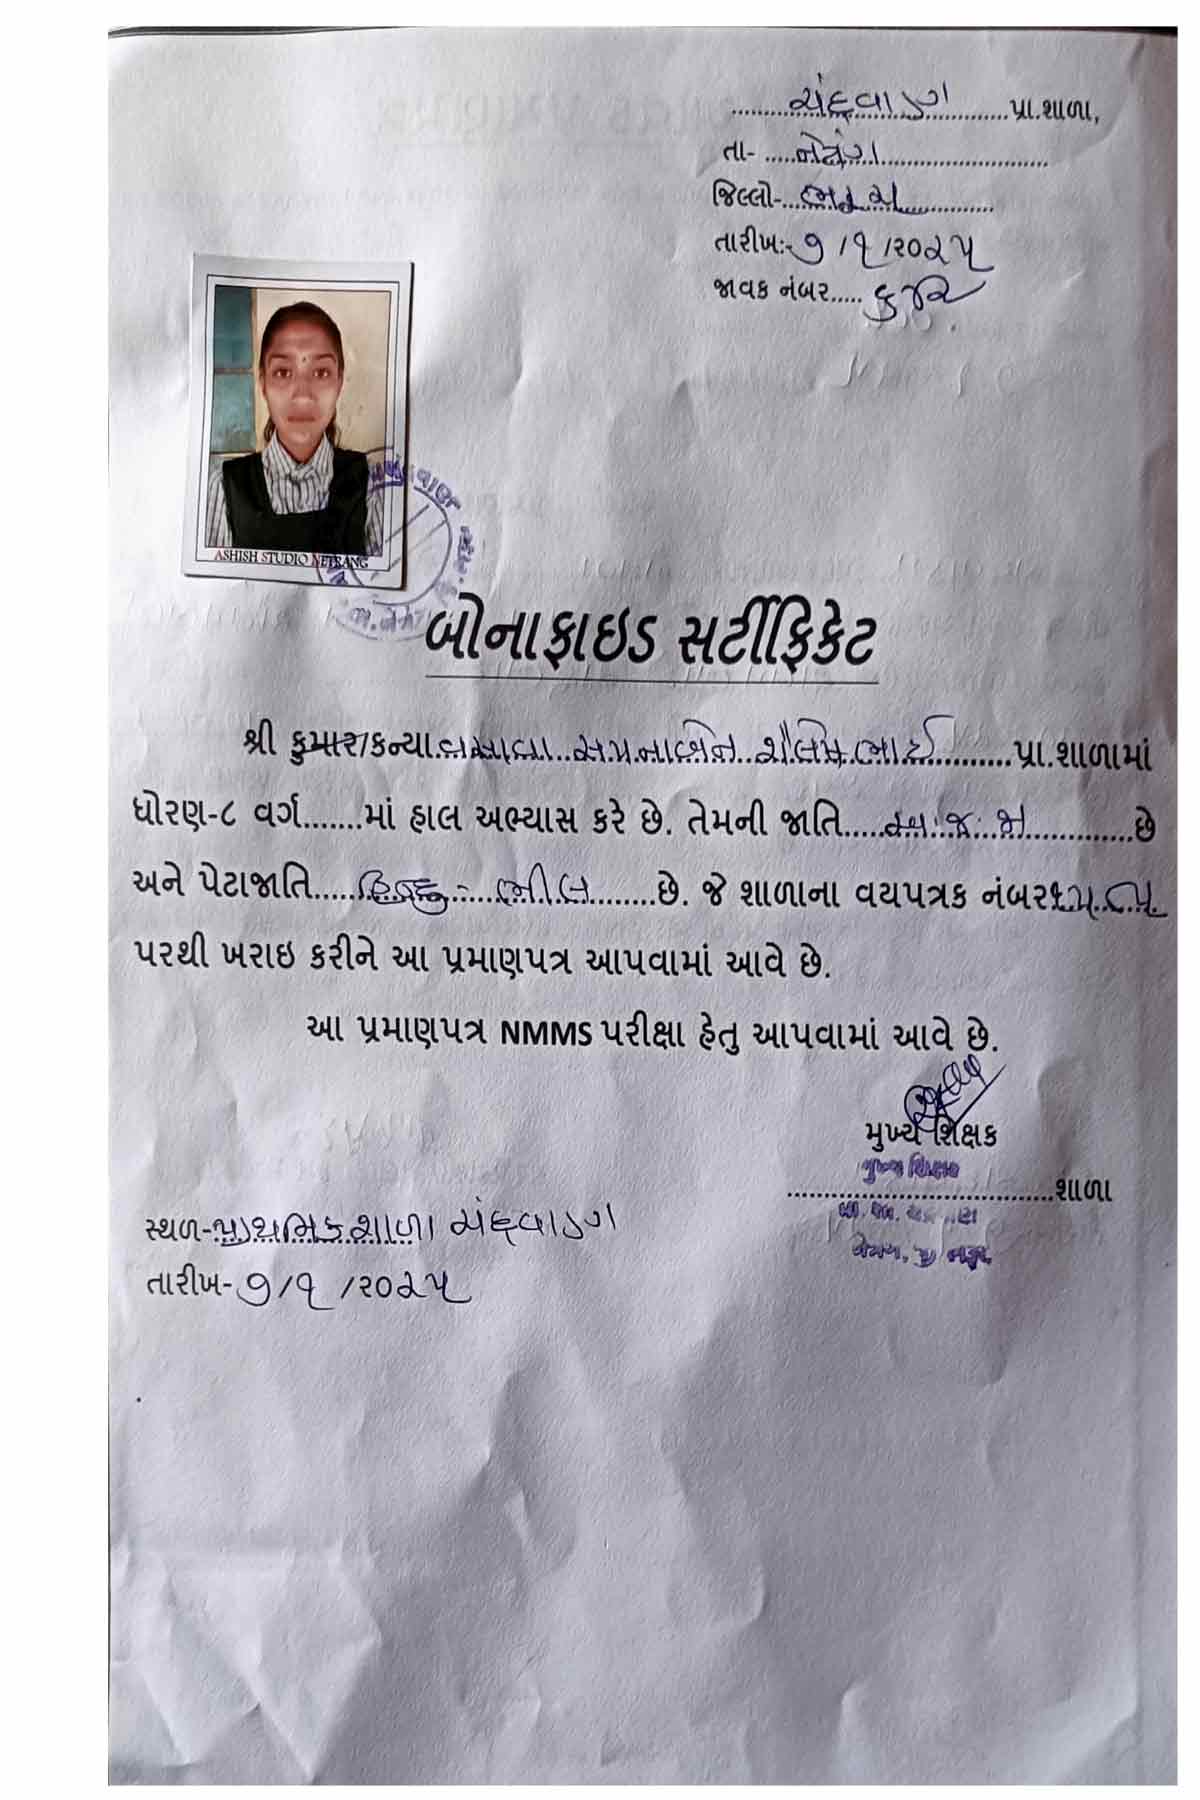 ચંદ્રવાણ પ્રા.શાળા,
તા- નેત્રંગ
જિલ્લો- ભરૂચ
તારીખ:- ૭/૧/૨૦૨૫
જાવક નંબર.....
ASHISH STUDIO NETRANG
બોનાફાઇડ સર્ટીફિકેટ
શ્રી કુમાર/કન્યા વસાવા સપનાબેન શૈલેષભાઈ પ્રા.શાળામાં
ધોરણ-૮ વર્ગ.......માં હાલ અભ્યાસ કરે છે. તેમની જાતિ છે
અને પેટાજાતિ હિન્દુ - ભીલ છે. જે શાળાના વયપત્રક નંબર
પરથી ખરાઇ કરીને આ પ્રમાણપત્ર આપવામાં આવે છે.
આ પ્રમાણપત્ર NMMS પરીક્ષા હેતુ આપવામાં આવે છે.
મુખ્ય શિક્ષક
મુખ્ય શિક્ષક
શાળા
સ્થળ- પ્રાથમિક શાળા ચંદ્રવાણ
તારીખ- ૭/૧/૨૦૨૫